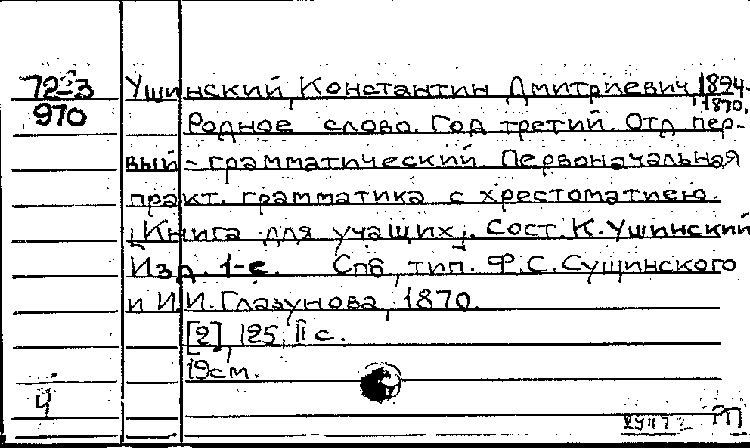 72-3 Ушинский, Константин Дмитриевич, 1824-
970 1870.
Родное слово. Год третий. Отд. пер-
вый - грамматический. Первоначальная
практ. грамматика с хрестоматиею.
[Книга для учащих]. Сост. К. Ушинский
Изд. 1-е. Спб, тип. Ф.С. Сущинского
и И.И. Глазунова, 1870.
[2], 125, II с.
19 см.
Ч
РП